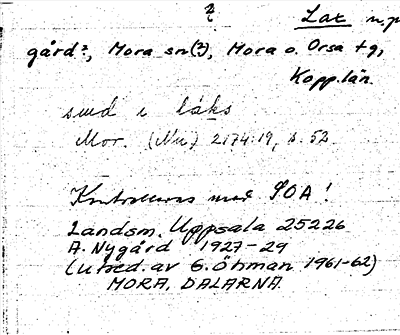 ?
Lat n.p
gård?, Mora sn(?), Mora o. Orsa tg,
Kopp.län.
smd i låks
Mor. (Nu) 2174:19, s. 53.
Kontrolleras med SOA!
Landsm. Uppsala 25226
A. Nygård 1927-29
(utred. av G. Öhman 1961-62)
MORA, DALARNA